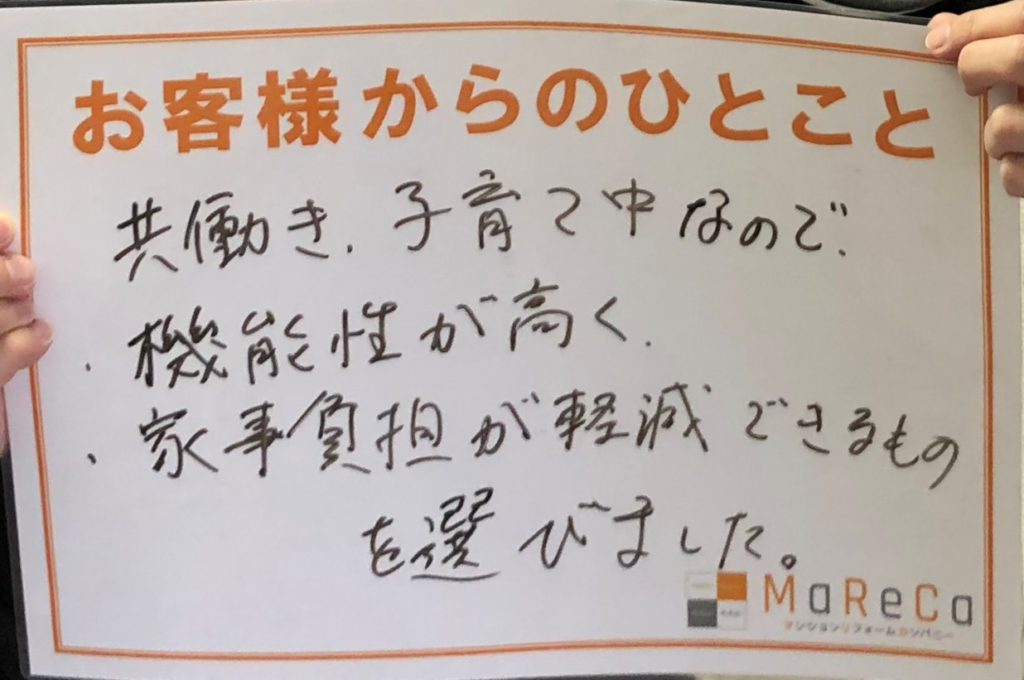 お客様からのひとこと
共働き、子育て中なので、
・機能性が高く、
・家事負担が軽減できるもの
を選びました。
MaReCa
マンションリフォームカンパニー